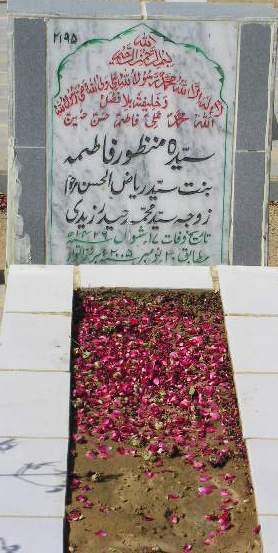 ۲۱۹۵
اللہ
بسم اللہ الرحمن الرحیم
لا الہ الا اللہ محمد رسول اللہ علی ولی اللہ وصی رسول اللہ
و خلیفتہ بلا فصل
اللہ محمد علی فاطمہ حسن حسین
سیدہ منظور فاطمہ
بنت سید ریاض الحسن مرحوم
زوجہ سید محمد حیدر زیدی
تاریخ وفات ۱۷ شوال ۱۴۲۶ھ
مطابق ۲۰ نومبر ۲۰۰۵ء بروز اتوار